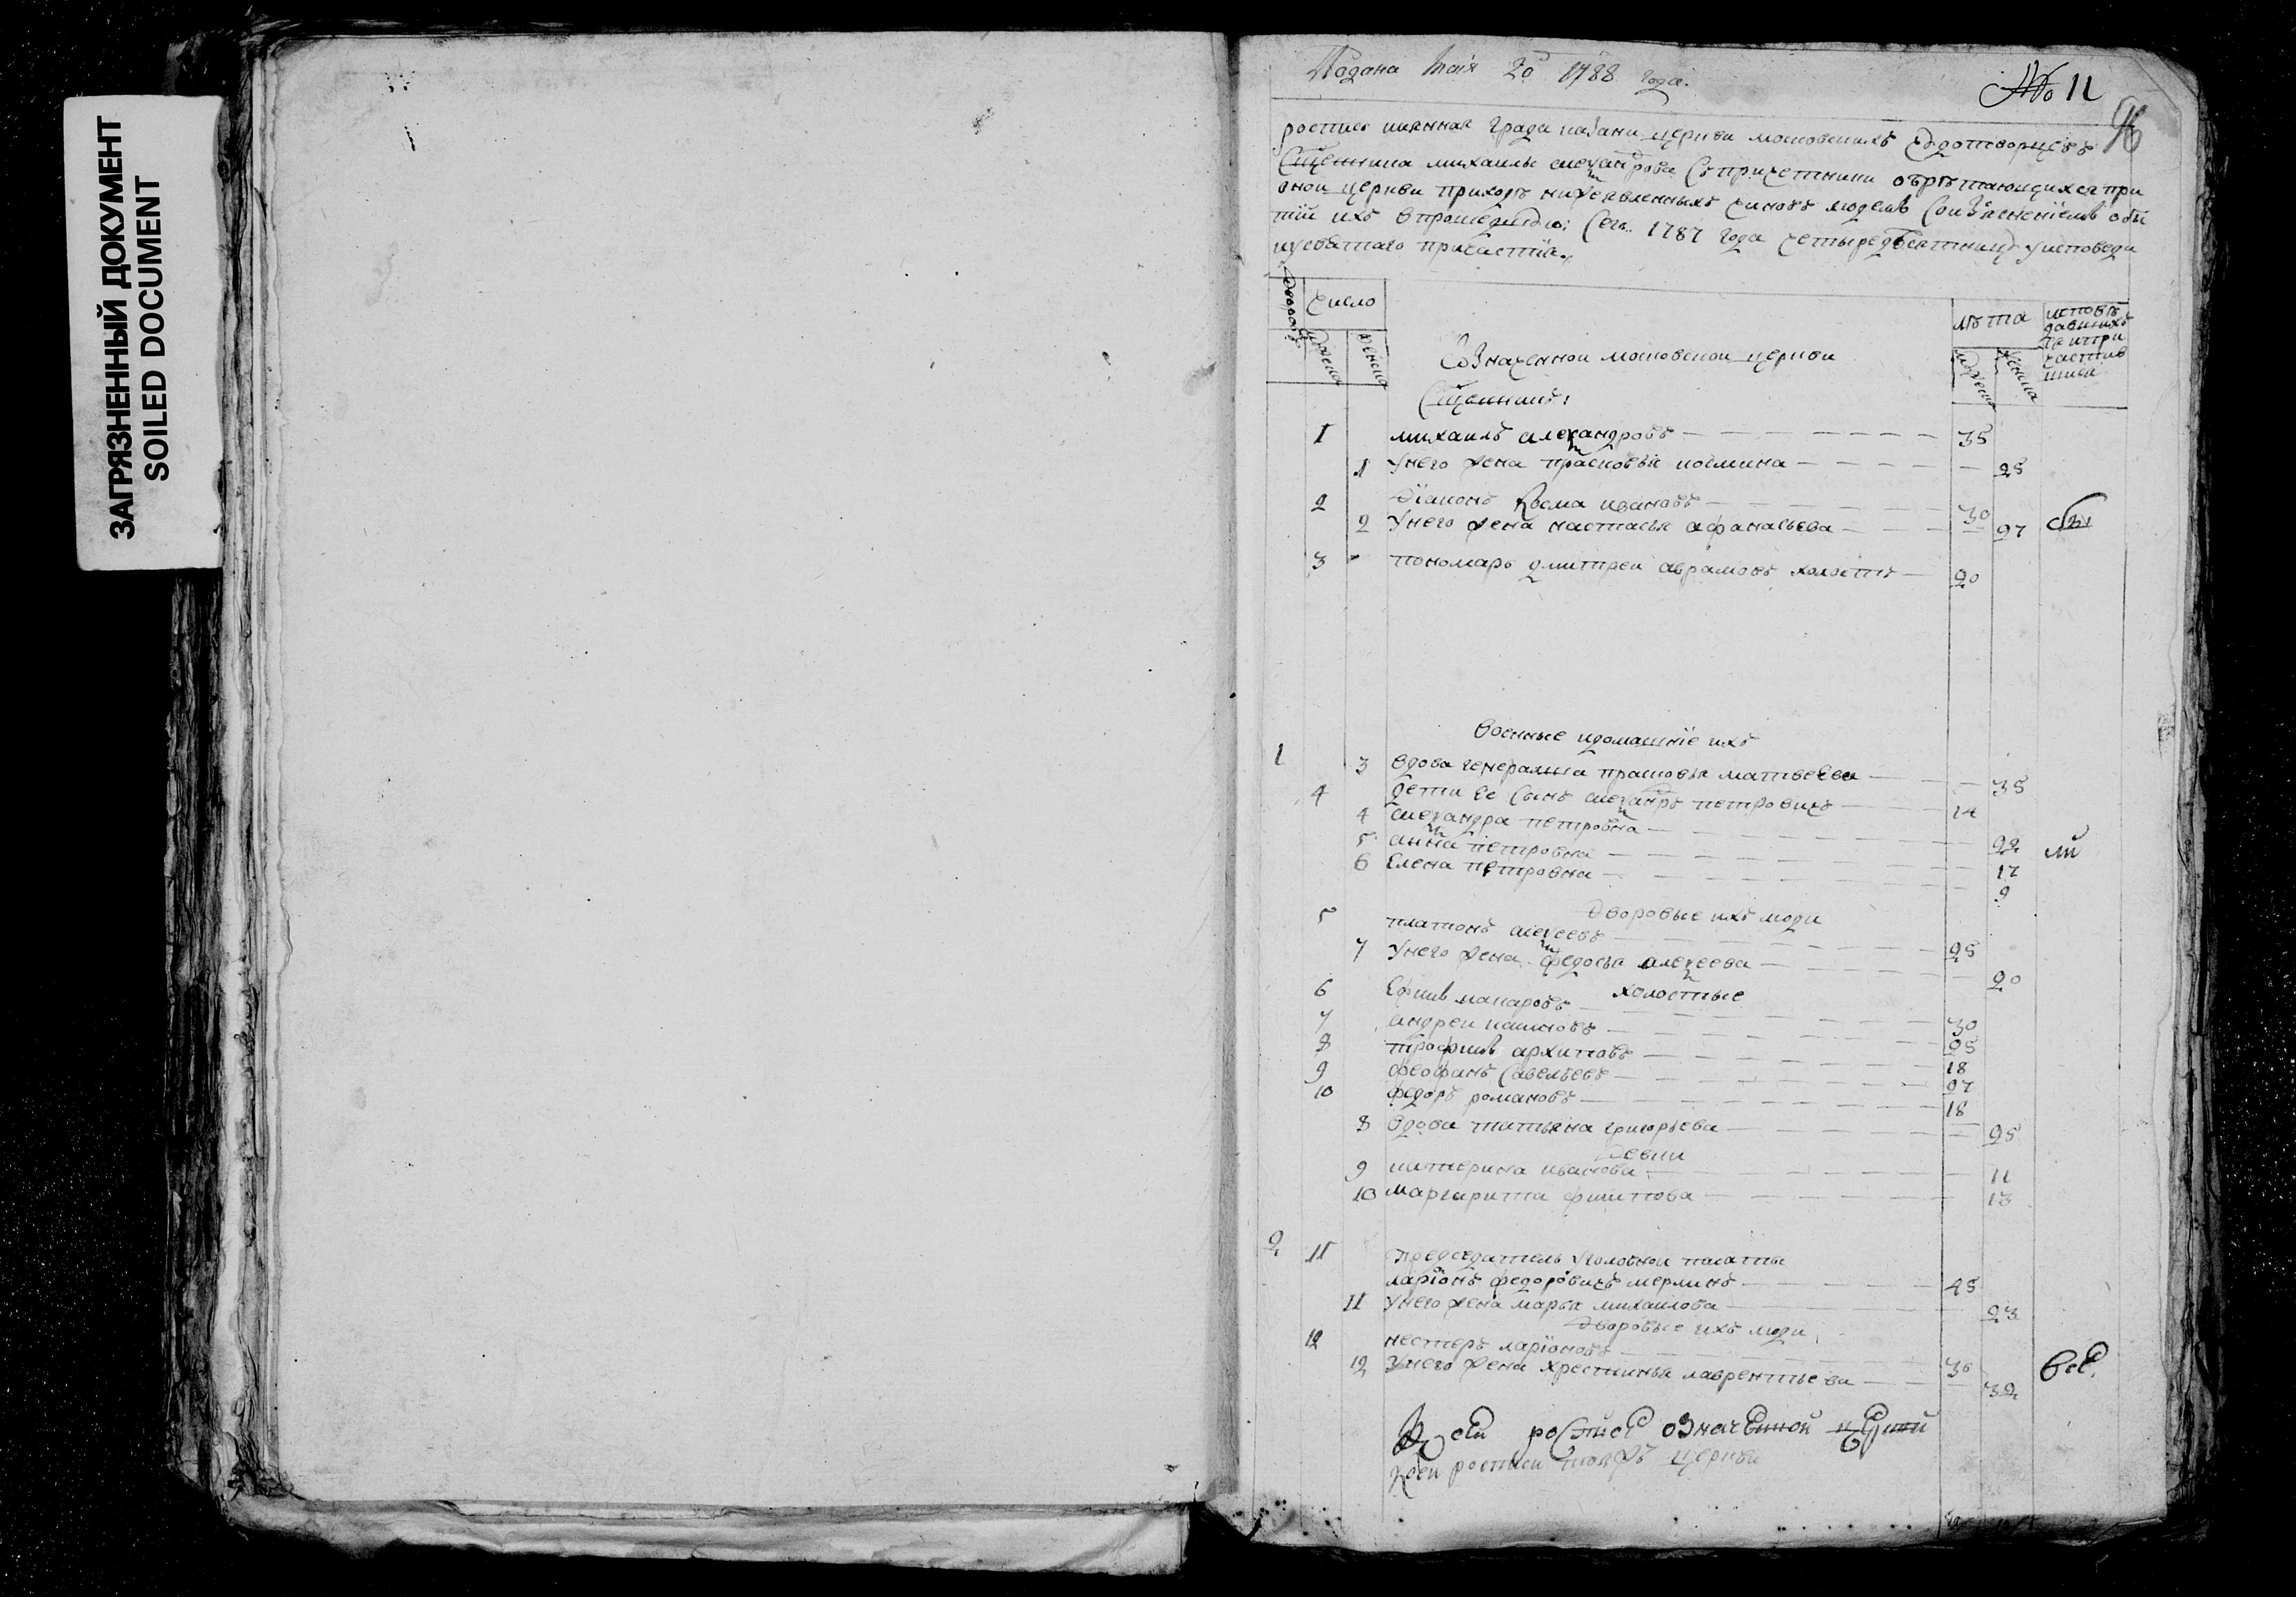 ЗАГРЯЗНЕННЫЙ ДОКУМЕНТ
SOILED DOCUMENT
Подана маiя 20 1788 года.
№ 11
96
роспись града казани церкви московскихъ чудотворцевъ
Сщенника михаилы алеѯандрова Съпричетники обретающихся при
оной церкви приходе нижеявленныхъ чиновъ людемъ Соизъясненiемъ
ихъ впрошедшемъ 1787 года четыредесятницу уисповеди
исвятаго причастiя.
дворовъ
число
мужеска
женска
Означенной московской церкви
лета
мужеска
женска
исповедавшихъ
Сщенникъ
1 михаилъ алеѯандровъ 35
1 Унего жена прасковья космина 25
2 Дiаконъ Косма ивановъ 30
2 Унего жена настасья афанасьева 27
3 пономарь дмитреи аврамовъ холостъ 20
Военные идомашнiе ихъ
1 3 Вдова генералша прасковья матвеева 35
4 дети ее Сынъ алеѯандръ петровичъ 14
4 алеѯандра петровна 22
5 анна петровна 17
6 Елена петровна 9
Дворовые ихъ люди
5 платонъ алеѯеевъ 25
7 Унего жена федосья алеѯеева 20
холостые
6 Ефимъ макаровъ 30
7 андреи 25
8 трофимъ архиповъ 18
9 феофанъ Савельевъ 27
10 федоръ романовъ 18
8 Вдова татьяна григорьева 25
Девки
9 катерина иванова 11
10 маргарита филипова 13
2 11 Председатель Уголовной палаты
ларiонъ федоровичъ мерлинъ 45
11 Унего жена марья михаилова 23
Дворовые ихъ люди
12 нестеръ ларiоновъ 30
12 Унего жена хрестинья лаврентьева 32
Все
Ксеи росписе означеной
Ксеи росписи церкви